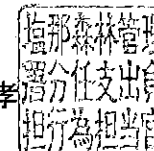 孝
塩那森林管理
署分任支出負
担行為担当官